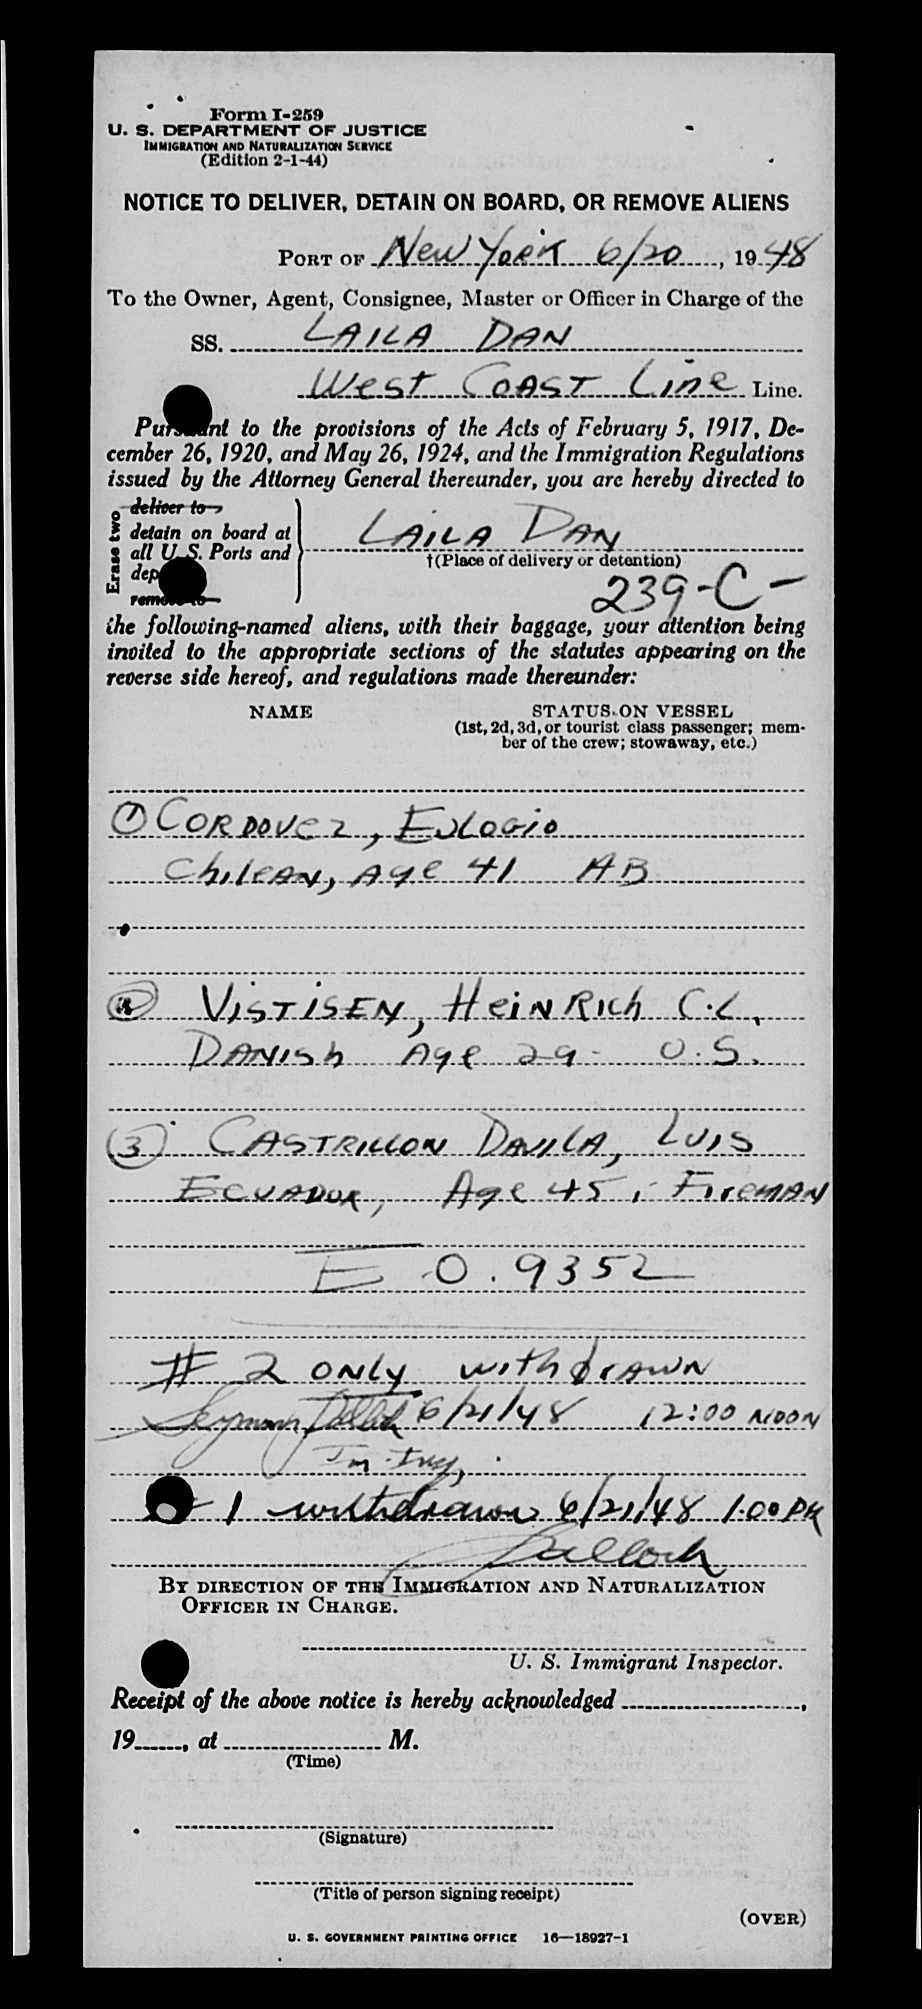 Form I-259
U. S. DEPARTMENT OF JUSTICE
IMMIGRATION AND NATURALIZATION SERVICE
(Edition 2-1-44)
NOTICE TO DELIVER, DETAIN ON BOARD, OR REMOVE ALIENS
PORT OF New York 6/20, 1948
To the Owner, Agent, Consignee, Master or Officer in Charge of the
SS. LAILA DAN
West Coast Line Line.
Pursuant to the provisions of the Acts of February 5, 1917, De-
cember 26, 1920, and May 26, 1924, and the Immigration Regulations
issued by the Attorney General thereunder, you are hereby directed to
Erase two
deliver to
detain on board at
all U. S. Ports and
dep
remove to
LAILA DAN
†(Place of delivery or detention)
239-C-
the following-named aliens, with their baggage, your attention being
invited to the appropriate sections of the statutes appearing on the
reverse side hereof, and regulations made thereunder:
NAME
STATUS ON VESSEL
(1st, 2d, 3d, or tourist class passenger; mem-
ber of the crew; stowaway, etc.)
1 CORDOVEZ, EULOGIO
Chilean, Age 41 AB
VISTISEN, HEINRICH C.L.
DANISH Age 29- O.S.
3 CASTRILLON DAVILA, LUIS
ECUADOR, Age 45, FIREMAN
E O. 9352
# 2 ONLY withdrawn
Seymour 6/21/48 12:00 NOON
Im. Insp.
1 withdrawn 6/21/48 1.00 PM
BY DIRECTION OF THE IMMIGRATION AND NATURALIZATION
OFFICER IN CHARGE.
U. S. Immigrant Inspector.
Receipt of the above notice is hereby acknowledged ,
19 , at M.
(Time)
(Signature)
(Title of person signing receipt)
(OVER)
U. S. GOVERNMENT PRINTING OFFICE 16—18927-1